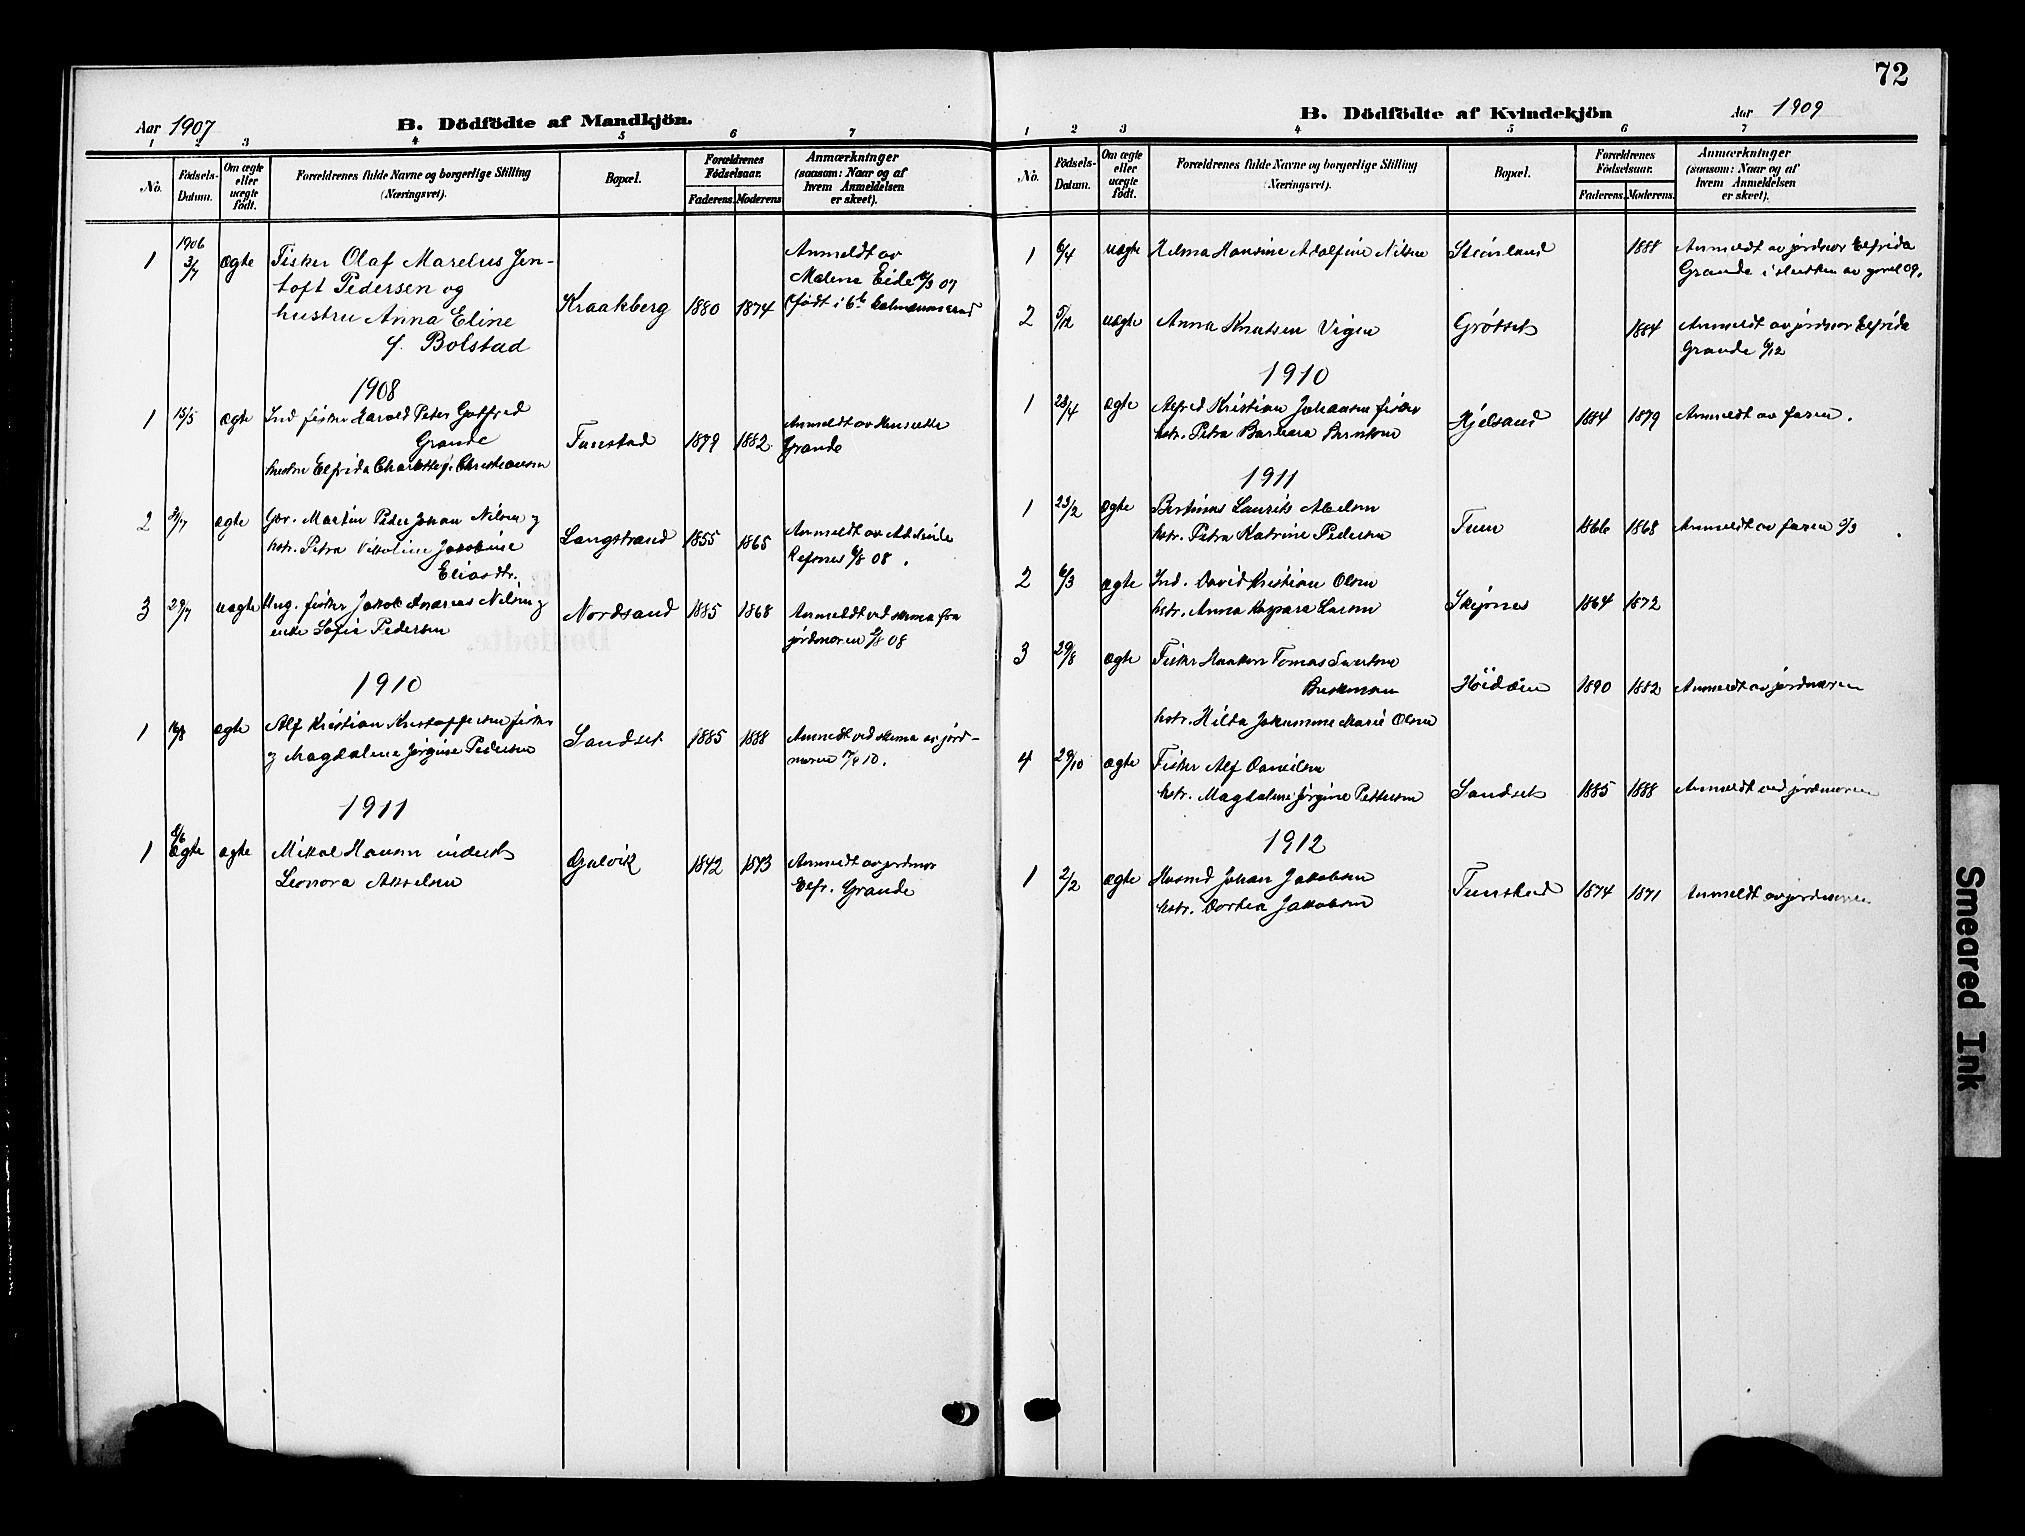 72
Aar 1907
B. Dödfödte af Mandkjön.
1 2 3 4 5 6 7
No.
Födsels-Datum.
Om ægte eller uægte födt.
Forældrenes fulde Navne og borgerlige Stilling (Næringsvei).
Bopæl.
Forældrenes Födselsaar.
Faderens. Moderens.
Anmærkninger (saasom: Naar og af hvem Anmeldelsen er skeet).
1 1906 3/7 ægte Fisker Olaf Marelius Jen-
toft Pedersen og
hustru Anna Eline
f. Bolstad
Kraakberg 1880 1874
Anmeldt av
Malene Eide 07
1908
1 15/5 ægte Ind fisker Harold Peter Gotfred
Grande
hustru Elfrida Charlotte f. Christiansen
Tunstad 1879 1882
Anmeldt av Henriette
Grande
2 ægte Gbr. Martin Peder Johan Nilsen og
hstr. Petra Jakobine
Eliasdtr.
Langstrand 1855 1865
Anmeldt av
Refsnes 6/8 08.
3 29/7 uægte Ung. fisker Jakob Andreas Nilsen og
enke Sofie Pedersen
Nordsand 1885 1868
Anmeldt ved skema fra
jordmoren 08
1910
1 ægte Alf Kristian Kristoffersen fisker
og Magdalena Jørgine Pedersen
Sandset 1885 1888
Anmeldt ved skema av jord-
moren 10.
1911
1 8/6 ægte ægte Mikal Hansen inderst
Leonora Akselsen
Gulvik 1842 1873
Anmeldt av jordmor
Elfr. Grande
B. Dödfödte af Kvindekjön
Aar 1909
1 2 3 4 5 6 7
No.
Födsels-Datum.
Om ægte eller uægte födt.
Forældrenes fulde Navne og borgerlige Stilling (Næringsvei).
Bopæl.
Forældrenes Födselsaar.
Faderens. Moderens.
Anmærkninger (saasom: Naar og af hvem Anmeldelsen er skeet).
1 6/4 uægte Helma Hansine Adolfine Nilsen Steinland 1888 Anmeldt av jordmor Elfrida
Grande i slutten av 09.
2 5/12 uægte Anna Knutsen Vigen Grötset 1884 Anmeldt av jordmor Elfrida
Grande 6/12
1910
1 28/4 ægte Alfred Kristian Johansen fisker
hstr. Petra Barbara Berntsen
Hjelsand 1884 1879 Anmeldt av faren.
1911
1 23/2 ægte Bertinus Laurits Abelsen
hstr. Petra Katrine Pedersen
Tuen 1866 1868 Anmeldt av faren 5/3
2 6/3 ægte Ind. David Kristian Olsen
hstr. Anna Kaspara Larsen
Skjönes 1864 1872
3 29/8 ægte Fisker Haakon Tomas
hstr. Hilda Johanne Marie Olsen
1890 1882 Anmeldt av jordmoren
4 29/10 ægte Fisker Alf Danielsen
hstr. Magdalene Jørgine Pettersen
Sandset 1885 1888 Anmeldt ved jordmoren
1912
1 2/2 ægte Husmd Johan Jakobsen
hstr. Dortea Jakobsen
Tunstad 1874 1871 Anmeldt av jordmoren
Smeared Ink